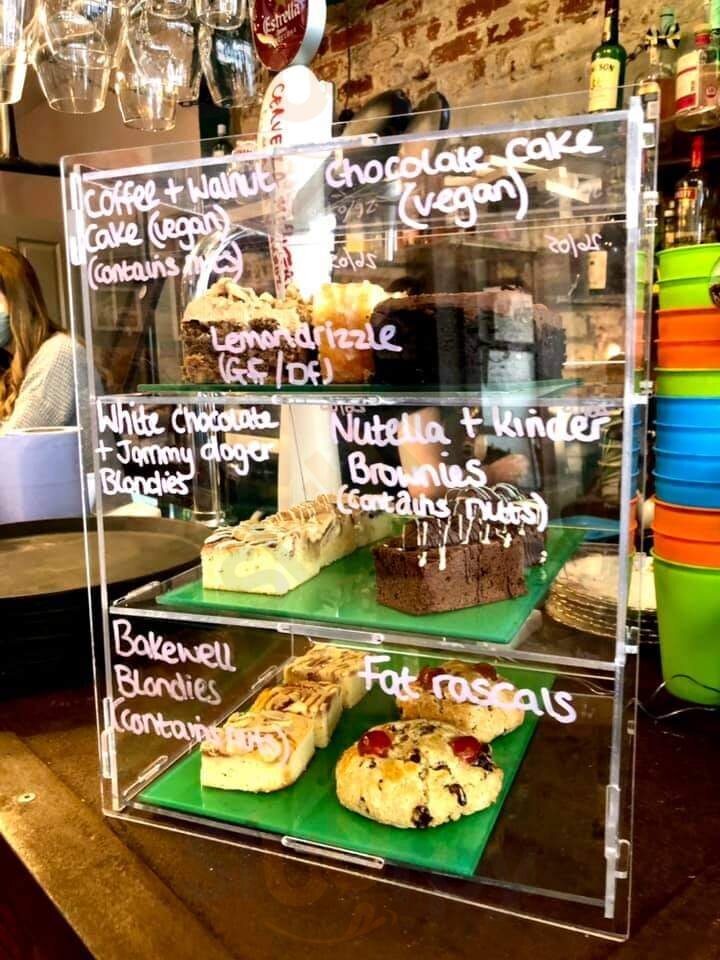 Estrella
Coffee + Walnut
Cake (vegan)
(contains nuts)
Chocolate cake
(vegan)
26/05
26/05
Lemon drizzle
(GF/DF)
White Chocolate
+ Jammy doger
Blondies
Nutella + kinder
Brownies
(contains nuts)
Bakewell
Blondies
(contains nuts)
Fat rascals